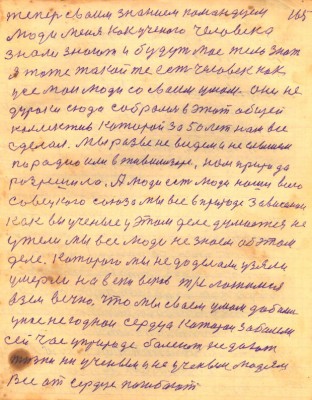 тепер своим знанием командуем 165
люди меня как ученого человека
знали знают и будут мое тело знат
я тоже такой же ест человек как
усе мои люди со своим умом. они не
дураки сюда собрались в этот общей
коллектив которой за 50 лет нам все
сделал. Мы разве не видем и не слышем
по радио или в тэливизере, нам природа
розрешила. А люди ест люди нашего всего
совецкого союза мы все в природе зависемы
как вы ученые у этом деле думаете, не
ужели мы все люди не знаем об этом
деле, которого мы не доделали узяли
умерли на веки веков
взем вечно. что мы своем умом
у нас не годной сердца которой заболели
сей час у природе болеют, не дают
жизни ни ученым и не ученым людям
Все от сердце погибают